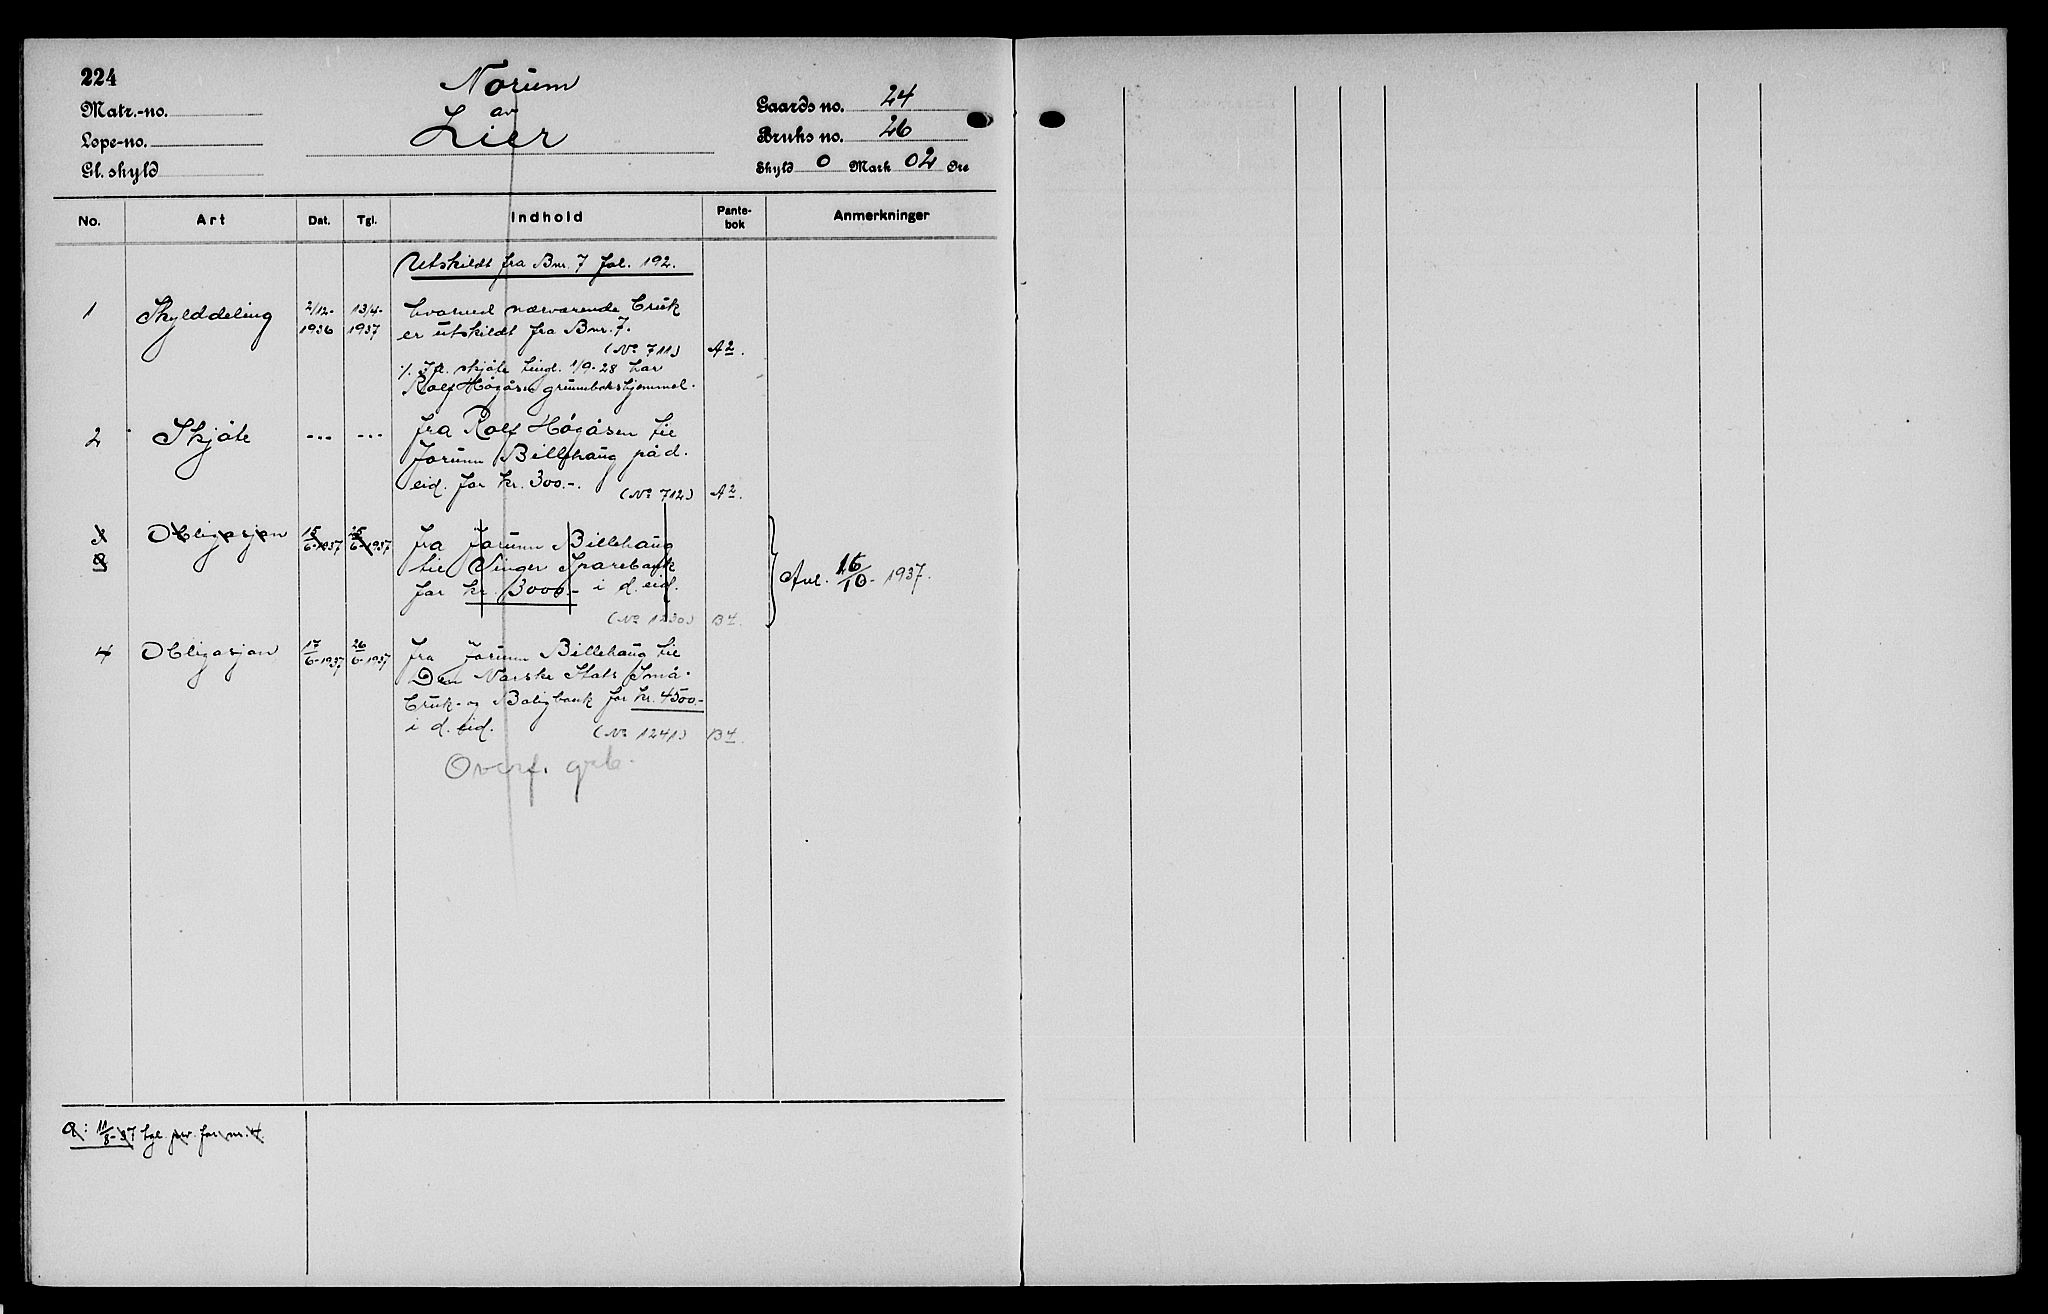 224
Norum
av
Lier
Matr.-no.
Lope-no.
Gl. skyld
Gaards no. 24
Bruks no. 26
Skyld 0 Mark 02 Øre
No. Art Dat. Tgl. Indhold Pante-bok Anmerkninger
Utskildt fra Bnr. 7 fol. 192.
1 Skylddeling 2/12-1936 13/4-1937 hvorved nærværende bruk
er utskildt fra Bnr. 7.
(No 711) A2.
%. Ifl. skjøte tingl. 1/9-28 har
Rolf Høgåsen grunnbokshjemmel.
2 Skjøte --- --- fra Rolf Høgåsen til
Jorunn Billehaug på d.
eid. for kr. 300.-.
(No 712) A2.
3 Obligasjon 15/6-1937 25/6-1937 fra Jorunn Billehaug
til Vinger Sparebank
for kr. 3000.- i d. eid.
(No 1230) B4.
Avl. 16/10-1937.
4 Obligasjon 17/6-1937 26/6-1937 fra Jorunn Billehaug til
Den Norske Stats Små-
bruk- og Boligbank for kr. 4500.-
i d. eid. (No 1241) B4.
Overf. grb.
a: 11/8-37 tgl. prv. for nr. 4